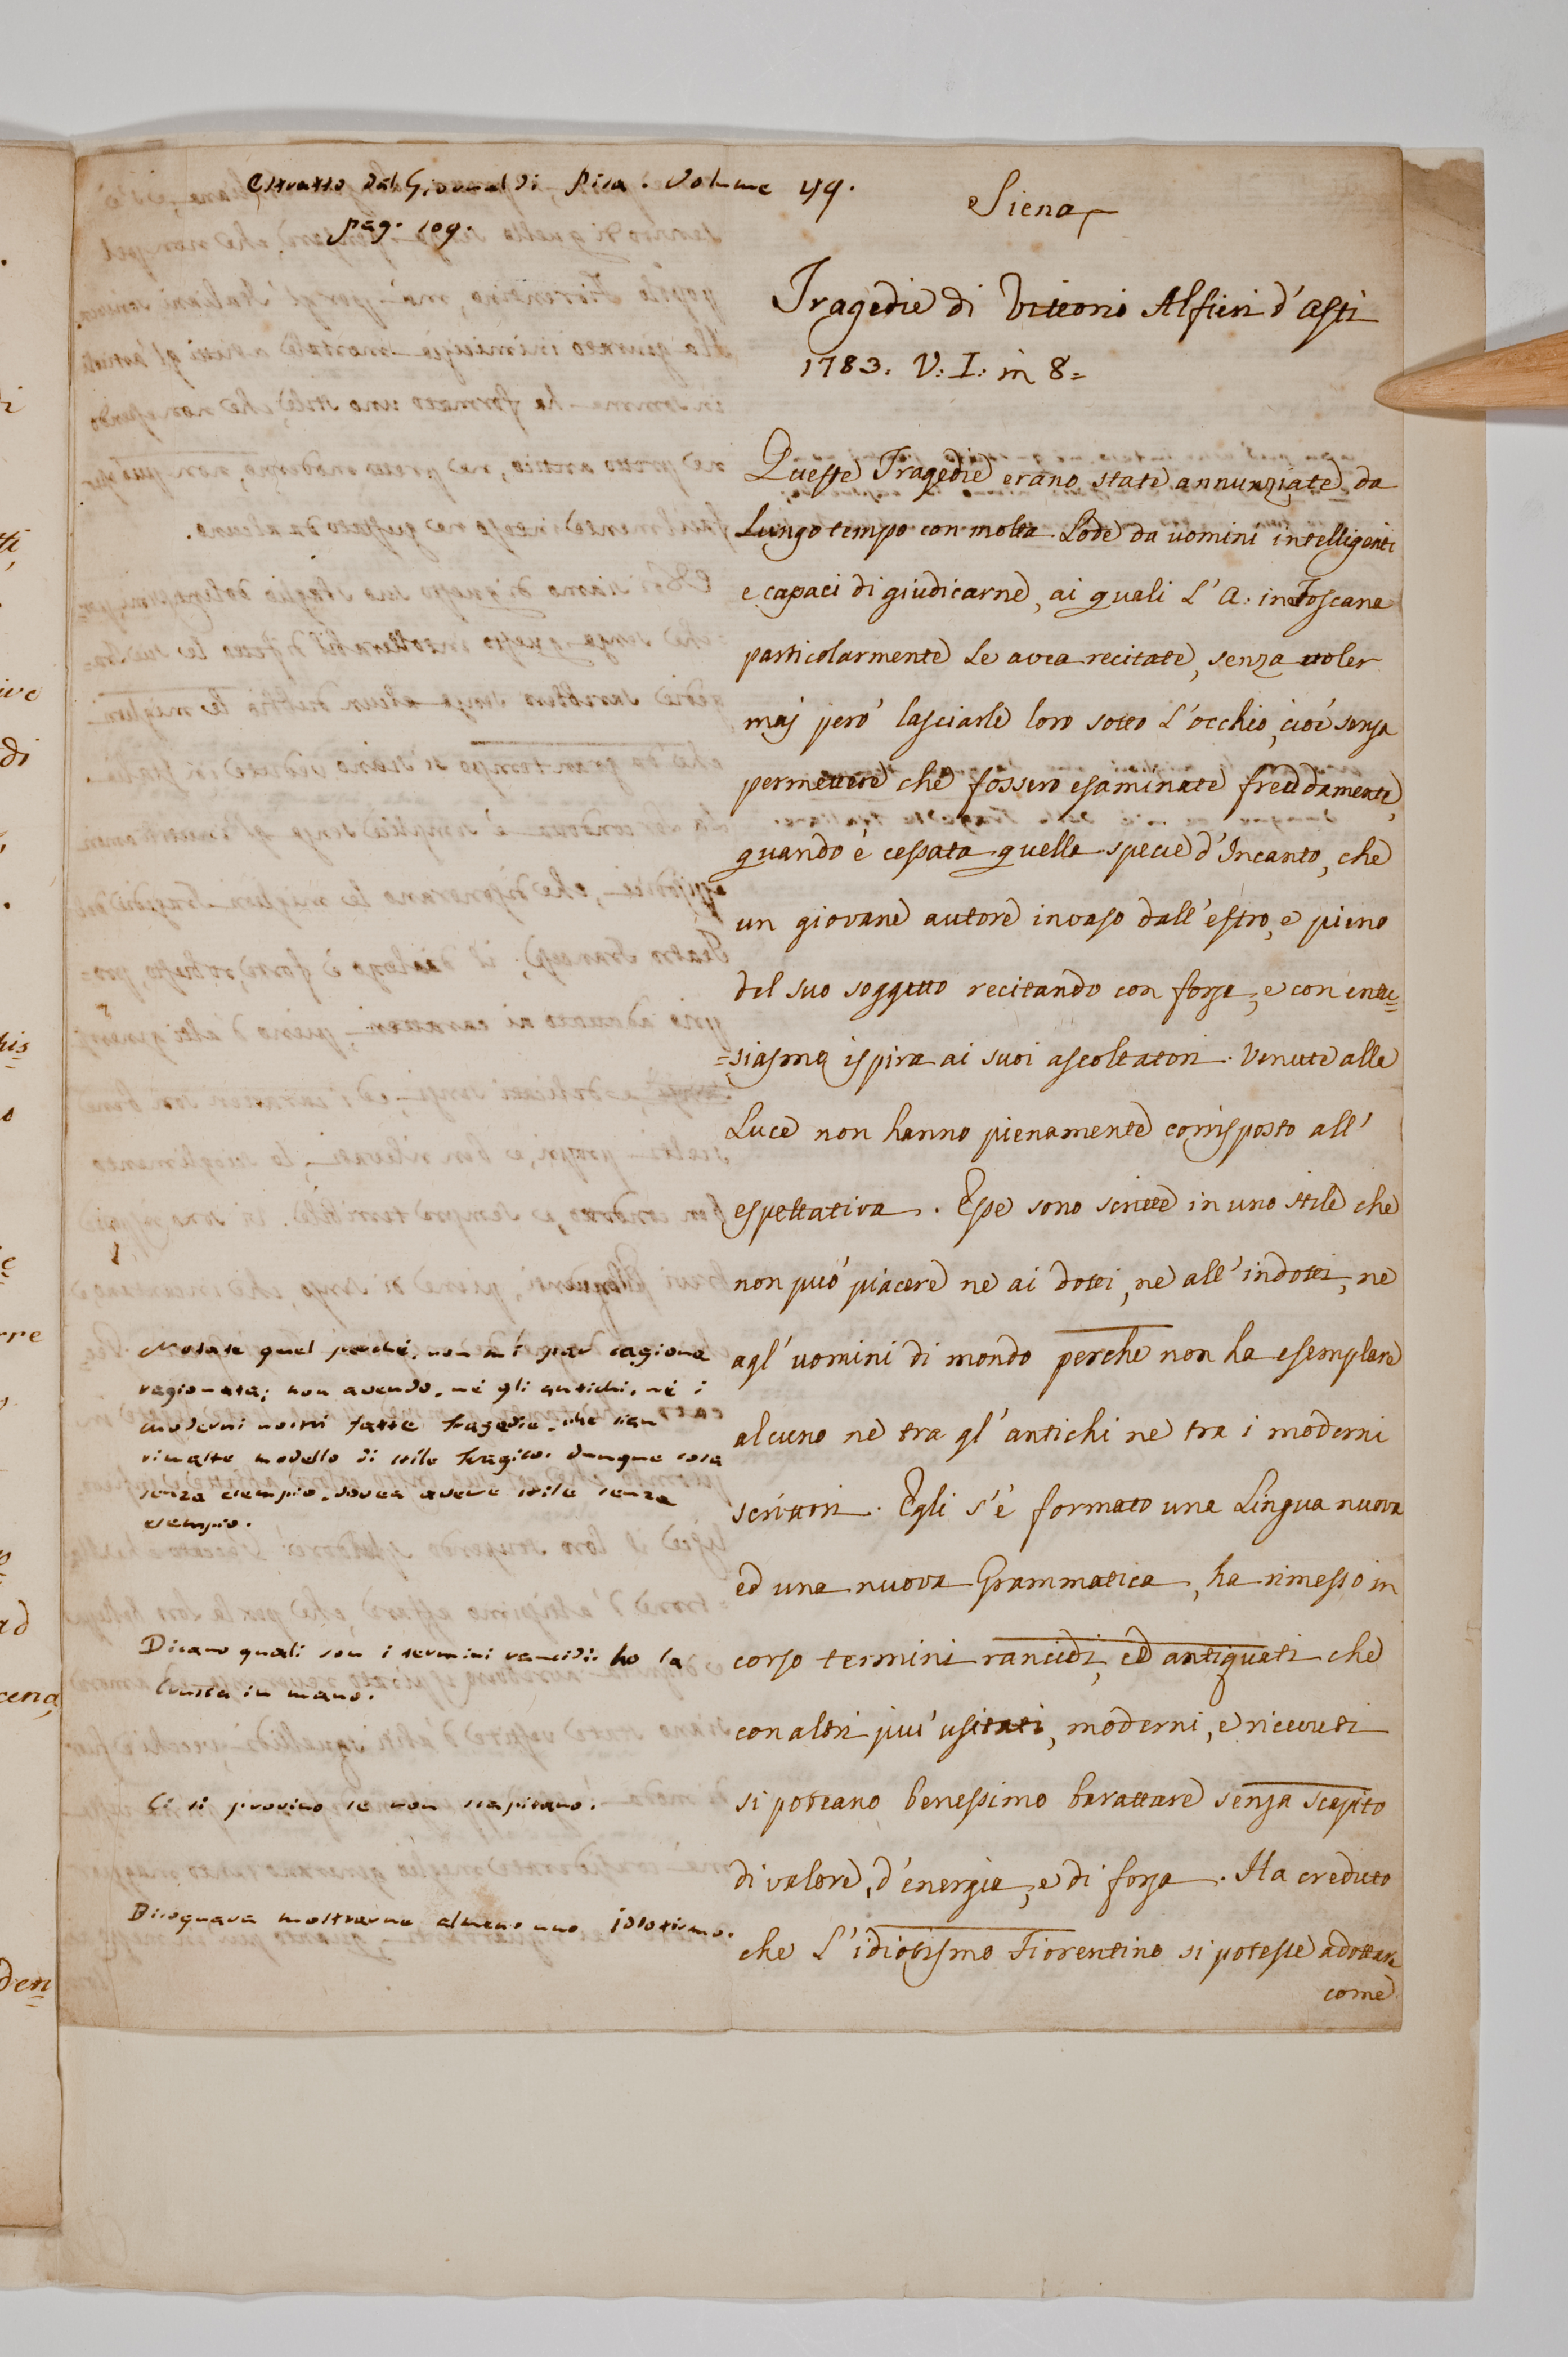 Estratto dal Giornal di Pisa. Volume 49.
pag. 109.
Siena
Tragedie di Vittorio Alfieri d'Asti
1783. V: I: in 8=
Queste Tragedie erano state annunziate da
Lungo tempo con molta Lode da uomini intelligenti
e capaci di giudicarne, ai quali L'A. in Toscana
particolarmente Le avea recitate, senza voler
maj però lasciarle loro sotto L'occhio, cioè senza
permettere che fossero esaminate freddamente,
quando è cessata quella specie d'Incanto, che
un giovane autore invaso dall'estro, e pieno
del suo soggetto recitando con forza, e con entu=
=siasmo ispira ai suoi ascoltatori. Venute alla
Luce non hanno pienamente corrisposto all'
espettativa. Esse sono scritte in uno stile che
non può piacere ne ai dotti, ne all'indotti, ne
agl'uomini di mondo perche non ha esemplare
alcuno ne tra gl'antichi ne tra i moderni
scrittori. Egli s'è formato una Lingua nuova
ed una nuova Grammatica, ha rimesso in
corso termini rancidi, ed antiquati che
con altri piu' usitati, moderni, e ricevuti
si poteano benessimo barattare senza scapito
di valore, d'energia, e di forza. Ha creduto
che L'idiotismo Fiorentino si potesse adottare
come
Notate quel perchè, non mi par ragione
ragionata; non avendo, nè gli antichi, nè i
moderni nostri fatte tragedie, che sian
rimaste modello di stile tragico. dunque cosa
senza esempio, dovea avere stile senza
esempio.
Dicano quali son i termini rancidi: ho la
Crusca in mano.
Ci si provino se non scapitano.
Bisognava mostrarne almeno uno idiotismo.